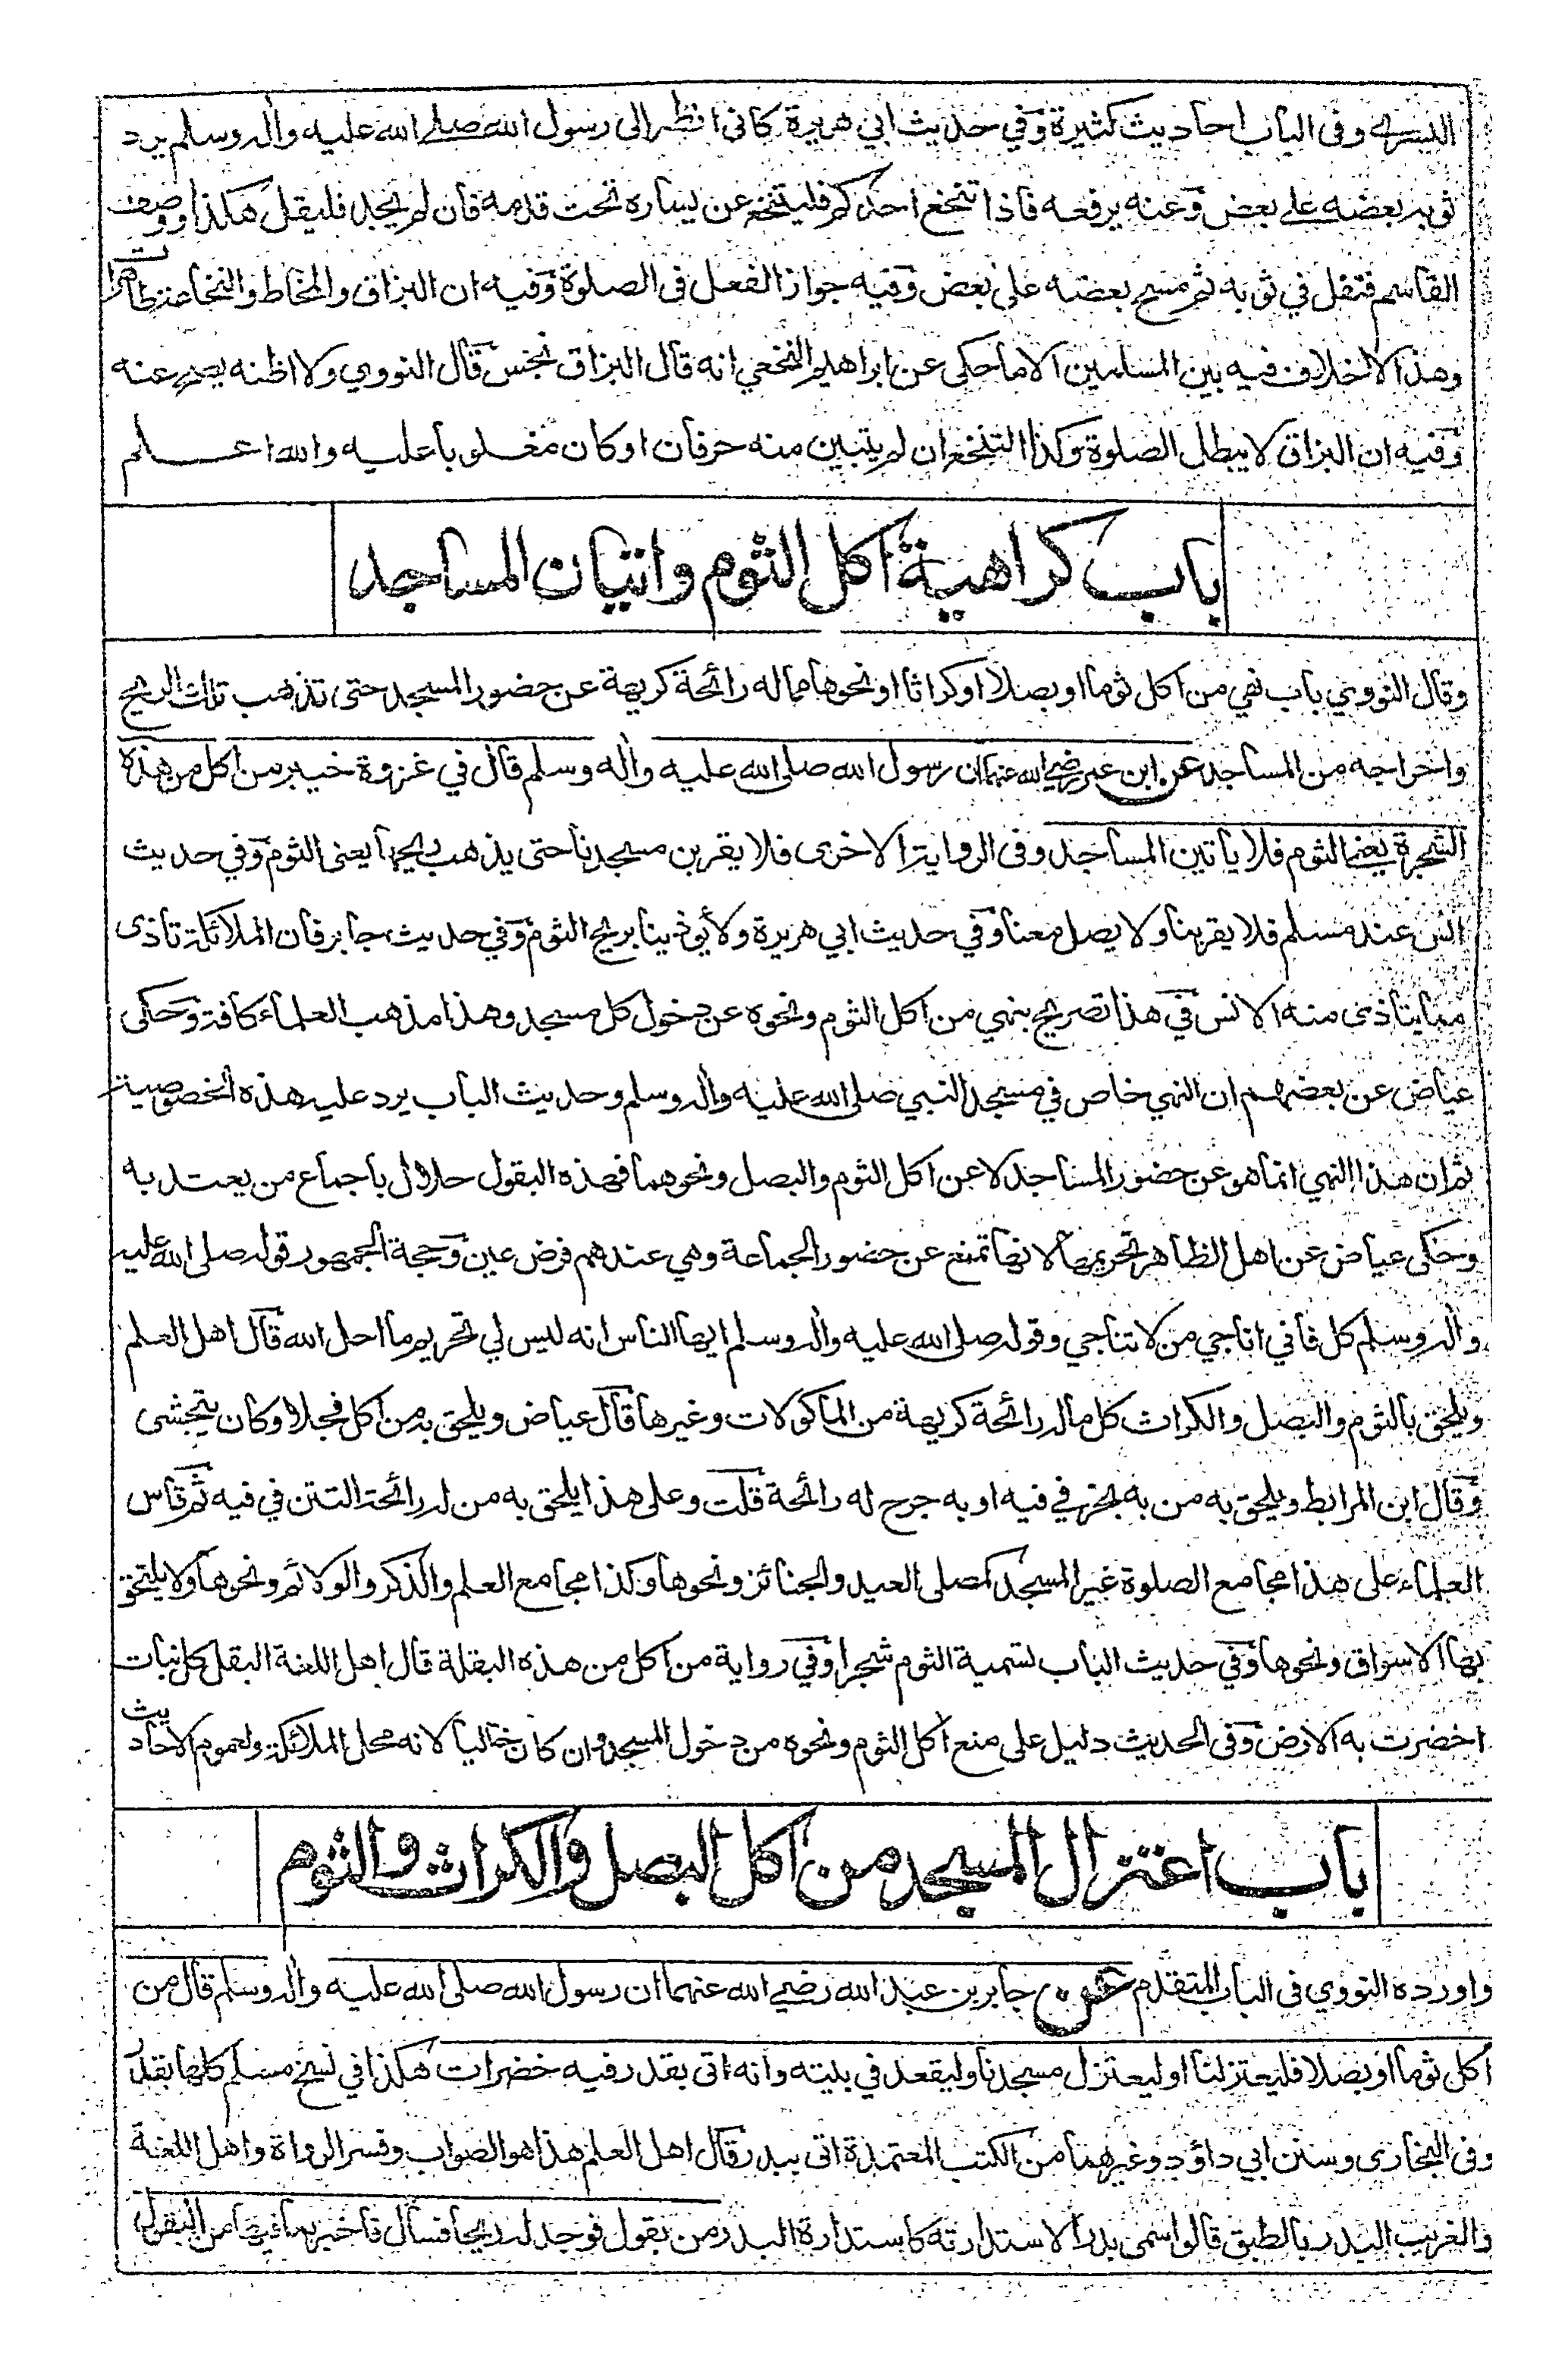 اليسرى وفى الباب احاديث كثيرة وفي حديث ابي هريرة كانى انظر الى رسول الله صلى الله عليه وأله وسلم يرد
ثوبه بعضه على بعض وعنه يرفعه فاذا تنخع احدكم فليتنخع عن يساره تحت قدمه فان لم يجد فليقل هكذا ووصف
القاسم فتفل في ثوبه ثم مسح بعضه على بعض وفيه جواز الفعل فى الصلوة وفيه ان البزاق والمخاط والنخاعة طاهرات
وهذا لاخلاف فيه بين المسلمين الا ما حكى عن ابراهيم النخعي انه قال البزاق نجس قال النووي ولا اظنه يصح عنه
وفيه ان البزاق لا يبطل الصلوة وكذا التنخع ان لم يتبين منه حرفان او كان مغلوبا عليه والله اعلم
باب كراهية اكل الثوم واتيان المساجد
وقال النووي باب نهي من اكل ثوما او بصلا او كراثا او نحوها مما له رائحة كريهة عن حضور المسجد حتى تذهب تلك الريح
واخراجه من المساجد عن ابن عمر رضي الله عنهما ان رسول الله صلى الله عليه وأله وسلم قال في غزوة خيبر من اكل من هذه
الشجرة يعنى الثوم فلا يأتين المساجد وفى الرواية الاخرى فلا يقربن مسجدنا حتى يذهب ريحها يعنى الثوم وفي حديث
انس عند مسلم فلا يقربنا ولا يصل معنا وفي حديث ابي هريرة ولا يؤذينا بريح الثوم وفي حديث جابر فان الملائكة تأذى
مما يتأذى منه الانس في هذا تصريح بنهي من اكل الثوم ونحوه عن دخول كل مسجد وهذا مذهب العلماء كافة وحكى
عياض عن بعضهم ان النهي خاص في مسجد النبي صلى الله عليه وأله وسلم وحديث الباب يرد عليه هذه الخصوصية
ثم ان هذا النهي انما هو عن حضور المساجد لا عن اكل الثوم والبصل ونحوهما فهذه البقول حلال باجماع من يعتد به
وحكى عياض عن اهل الظاهر تحريمها لانها تمنع عن حضور الجماعة وهي عندهم فرض عين وحجة الجمهور قوله صلى الله عليه
وأله وسلم كل فاني اناجي من لا تناجي وقوله صلى الله عليه وأله وسلم ايها الناس انه ليس لي تحريم ما احل الله قال اهل العلم
ويلحق بالثوم والبصل والكراث كل ماله رائحة كريهة من المأكولات وغيرها قال عياض ويلحق به من اكل فجلا وكان يتجشى
وقال ابن المرابط ويلحق به من به بخر في فيه او به جرح له رائحة قلت وعلى هذا يلحق به من له رائحة التتن في فيه ثم قاس
العلماء على هذا مجامع الصلوة غير المسجد كمصلى العيد والجنائز ونحوها وكذا مجامع العلم والذكر والولائم ونحوها ولا يلتحق
بها الاسواق ونحوها وفي حديث الباب تسمية الثوم شجرا وفي رواية من اكل من هذه البقلة قال اهل اللغة البقل كل نبات
اخضرت به الارض وفى الحديث دليل على منع اكل الثوم ونحوه من دخول المسجد وان كان خاليا لانه محل الملائكة ولعموم الاحاديث
باب اعتزال المسجد من اكل البصل والكراث والثوم
واورده النووي فى الباب المتقدم عن جابر بن عبد الله رضي الله عنهما ان رسول الله صلى الله عليه وأله وسلم قال من
اكل ثوما او بصلا فليعتزلنا او ليعتزل مسجدنا وليقعد في بيته وانه اتى بقدر فيه خضرات هكذا في نسخ مسلم كلها بقدر
وفى البخارى وسنن ابي داؤد وغيرهما من الكتب المعتمدة اتى ببدر قال اهل العلم هذا هو الصواب وفسر الرواة واهل اللغة
والغريب البدر بالطبق قالوا سمى بدرا لاستدارته كاستدارة البدر من بقول فوجد لها ريحا فسأل فاخبر بما فيها من البقول